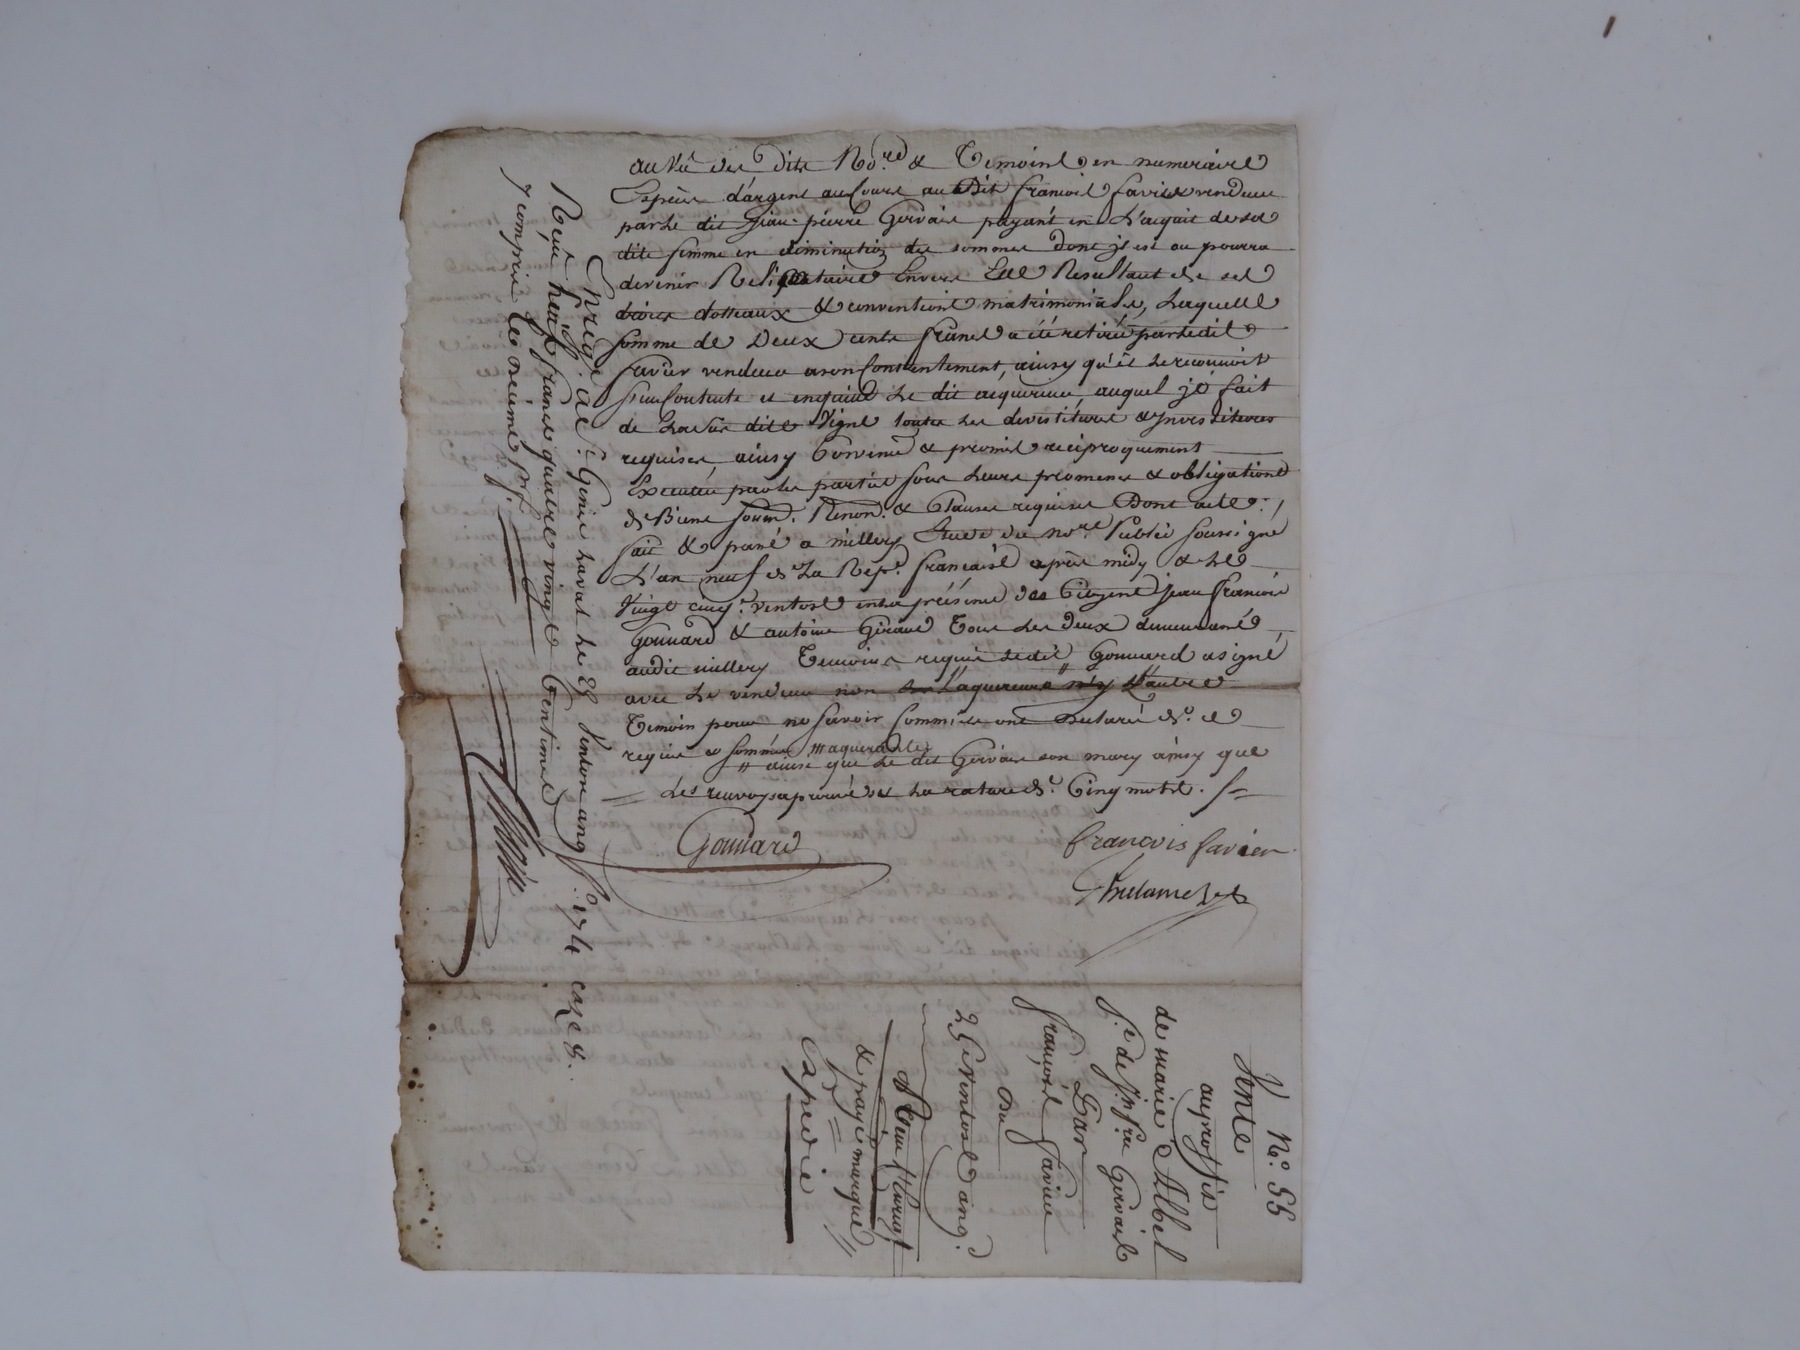 au vû des dits No.re & Temoins en numeraire
Especes d'argent au cours au dit françois favier vendeur
par le dit jean pierre Gervais payant en l'acquit de sa
dite femme en diminution des sommes dont jl est ou pourra
devenir Reliquataire Envers Elle Resultant de ses
droits dotteaux & conventions matrimoniales, Laquelle
somme de Deux cents francs a été retirée par ledit
favier vendeur a son Contentement, ainsy qu'il le reconnoit
s'en Contente et en quitte Le dit acquereur auquel jl fait
de La sus dite Vigne toutes les devestitures & jnvestitures
requises, ainsy Convenu & promis reciproquement
Executer par les parties sous Leurs promesses & obligations
de Biens soum. Renon. & Clauses requises Dont acte.
fait & passé a millery Etude du no.re Public soussigné
L'an neuf de La Rep. francaise après midy & le
Vingt cinq ventose en la présence des Citoyens jean françois
Gouuard & antoine Giraud Tous Les deux demeurants
audit millery Temoins requis ledit Gouuard a signé
avec Le vendeur non L'aquereure n'y L'autre
Temoin pour ne savoir Comme ils ont Declaré de ce
requis & sommés
ainsi que Le dit Gervais son mary ainsy que
Les renvoys aprouvés & La rature de Cinq mots.
Gouuard
françois favier
Enreg. a Genis Laval Le 28 Ventose an 9 f.o 174 case 8.
Reçu huit francs quatre vingt Centimes
y compris le decime
N.o 55
Vente
au proffit
de marie Abel
f.e de j.n p.re Gervais
Par
françois favier
Du
25 Ventose an 9.
& payé marqué
Expedié